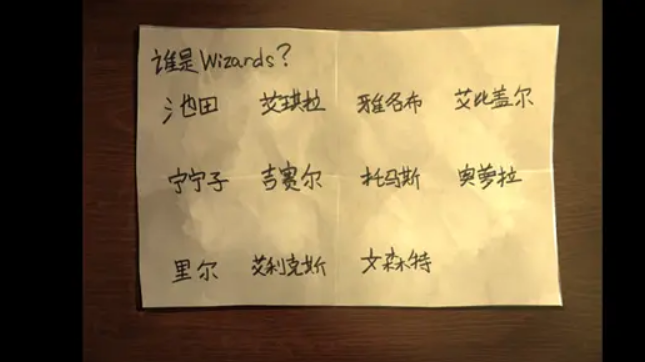 谁是Wizards?
池田 艾琪拉 雅各布 艾比盖尔
宁宁子 吉赛尔 托马斯 奥萝拉
里尔 艾利克斯 文森特